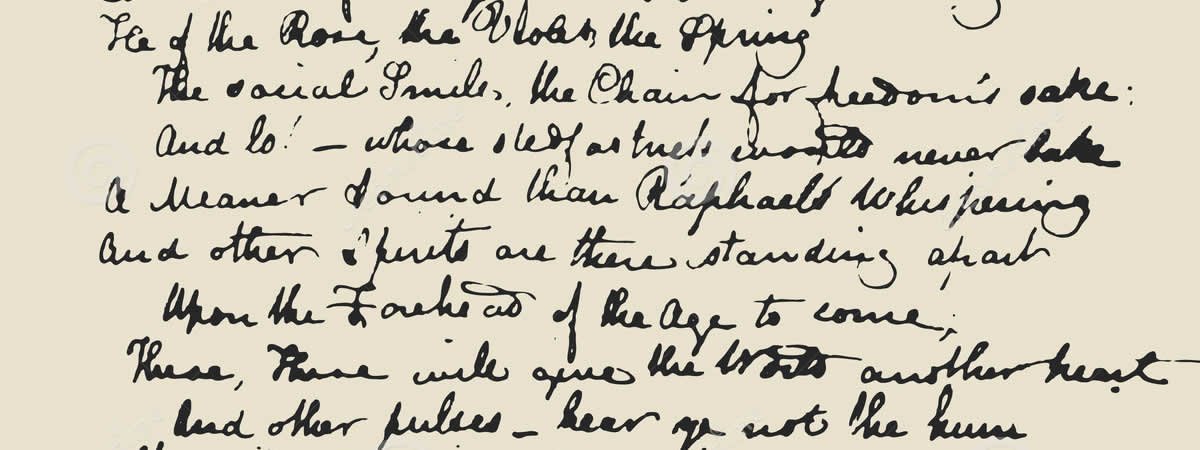 He of the Rose, the Violet, the Spring
The social Smile, the Chain for freedom's sake:
And lo! — whose stedfastness would never take
A Meaner Sound than Raphael's Whispering
And other Spirits are there standing apart
Upon the Forehead of the Age to come;
These, These will give the World another heart
And other pulses — hear ye not the hum